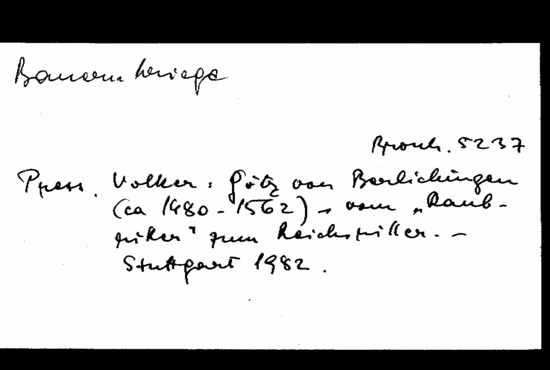 Bauernkriege
Brosch. 5237
Press, Volker: Götz von Berlichingen
(ca 1480-1562) - vom "Raub-
ritter" zum Reichsritter. -
Stuttgart 1982.